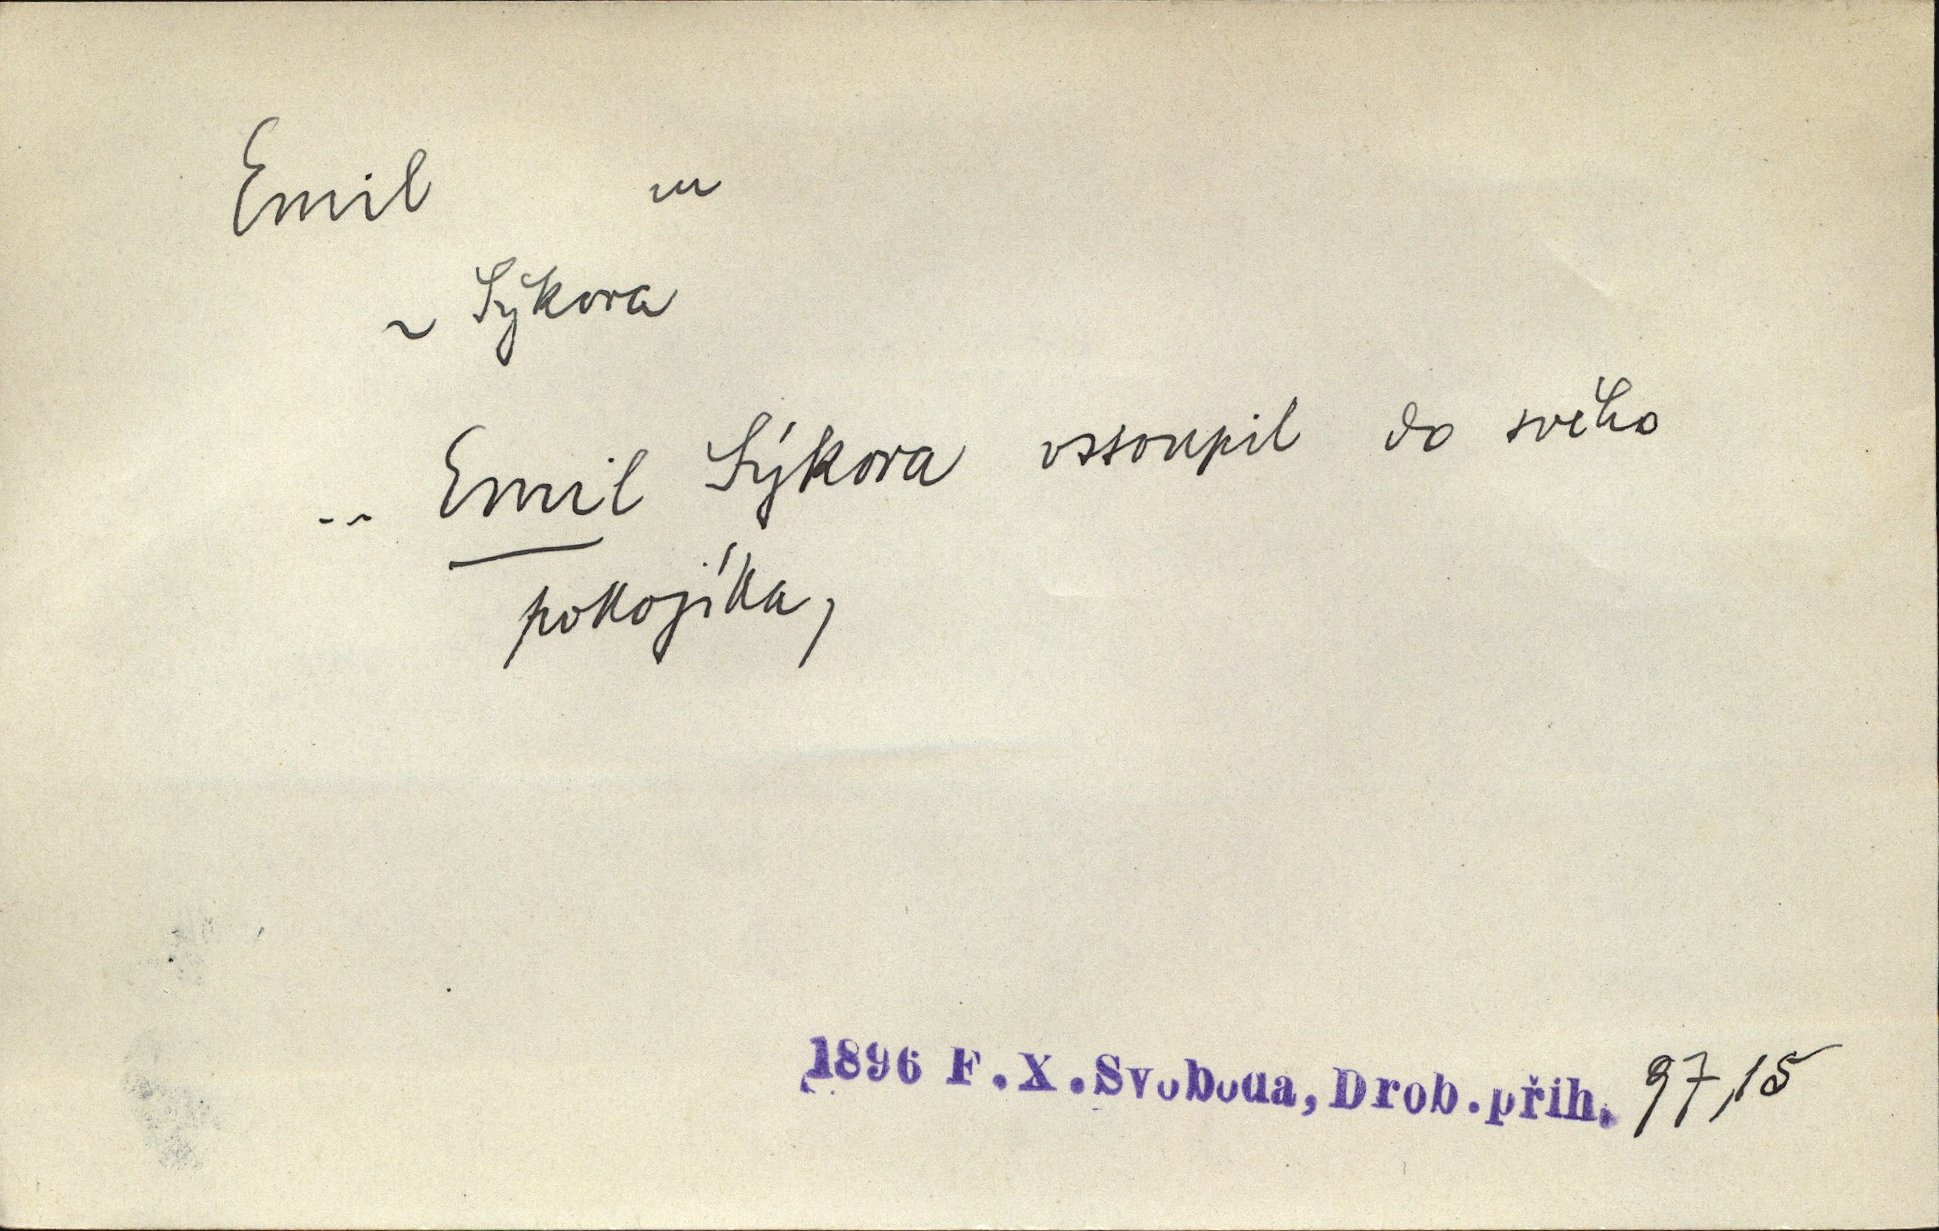 Emil m
~ Sýkora
.. Emil Sýkora vstoupil do svého
pokojíka,
1896 F.X.Svoboda, Drob.přih. 97,15